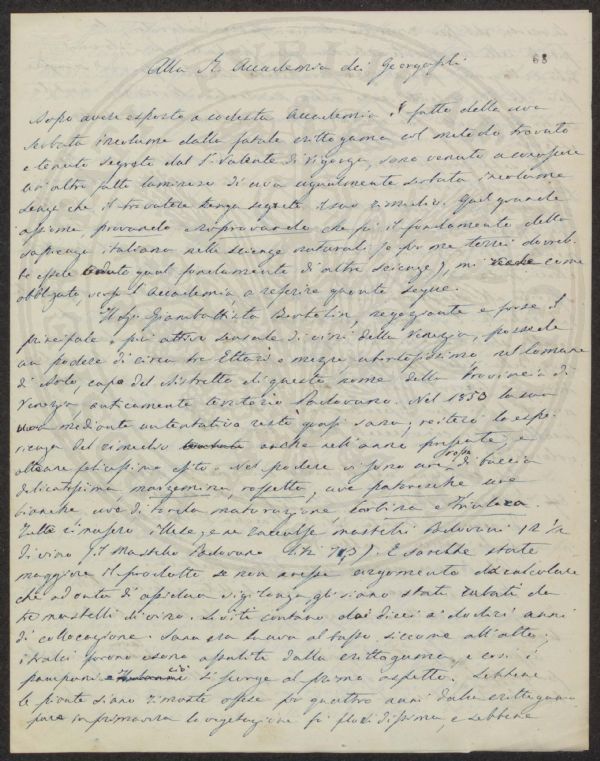 68
Alla R. Accademia dei Georgofili
Dopo avere esposto a codesta Accademia il fatto della uva
serbata incolume dalla fatale crittogama col metodo trovato
e tenuto segreto dal Sr. Valente di Vigonza, sono venuto a conoscere
un altro fatto luminoso di uva egualmente serbata incolume
senza che il trovatore tenga segreto il suo rimedio. Quel grande
assioma provando e riprovando che fu il fondamento della
sapienza italiana nelle scienze naturali (e per me terrei dovreb-
be essere quel fondamento di altre scienze), mi rende come
obbligato verso l'Accademia a referire quanto segue.
Il Sr. Giambattista Bertolin, negoziante e forse il
principale e più attivo sensale di vini della Venezia, possiede
un podere di circa tre Ettari e mezzo, nel Comune
di Dolo, capo del distretto di questo nome della Provincia di
Venezia, anticamente territorio Padovano. Nel 1853 la sua
uva mediante un tentativo restò quasi sana; reiterò la espe-
rienza del rimedio anche nell'anno presente, e
ottenne felicissimo esito. Nel podere vi sono uve rosse di buccia
delicatissima, marzemina, rossetta, uve pataresche uve
bianche, uve di tarda maturazione, corbina e friulara.
Tutte rimasero illese, e ne raccolse mastelli Padovani 12 1/2
di vino (il Mastello Padovano Lit. 71,3). E sarebbe stato
maggiore il prodotto se non avesse argomento da calcolare
che ad onta di assidua vigilanza gli siano stati rubati da
tre mastelli di vino. Le viti contano dai dieci a dodici anni
di collocazione. Sana era l'uva al basso, siccome all'alto;
i tralci furono esenti dalla crittogama, e così i
pampani: ciò si scorge al primo aspetto. Sebbene
le piante siano rimaste offese per quattro anni dalla crittogama
pure in primavera la vegetazione fu floridissima, e sebbene